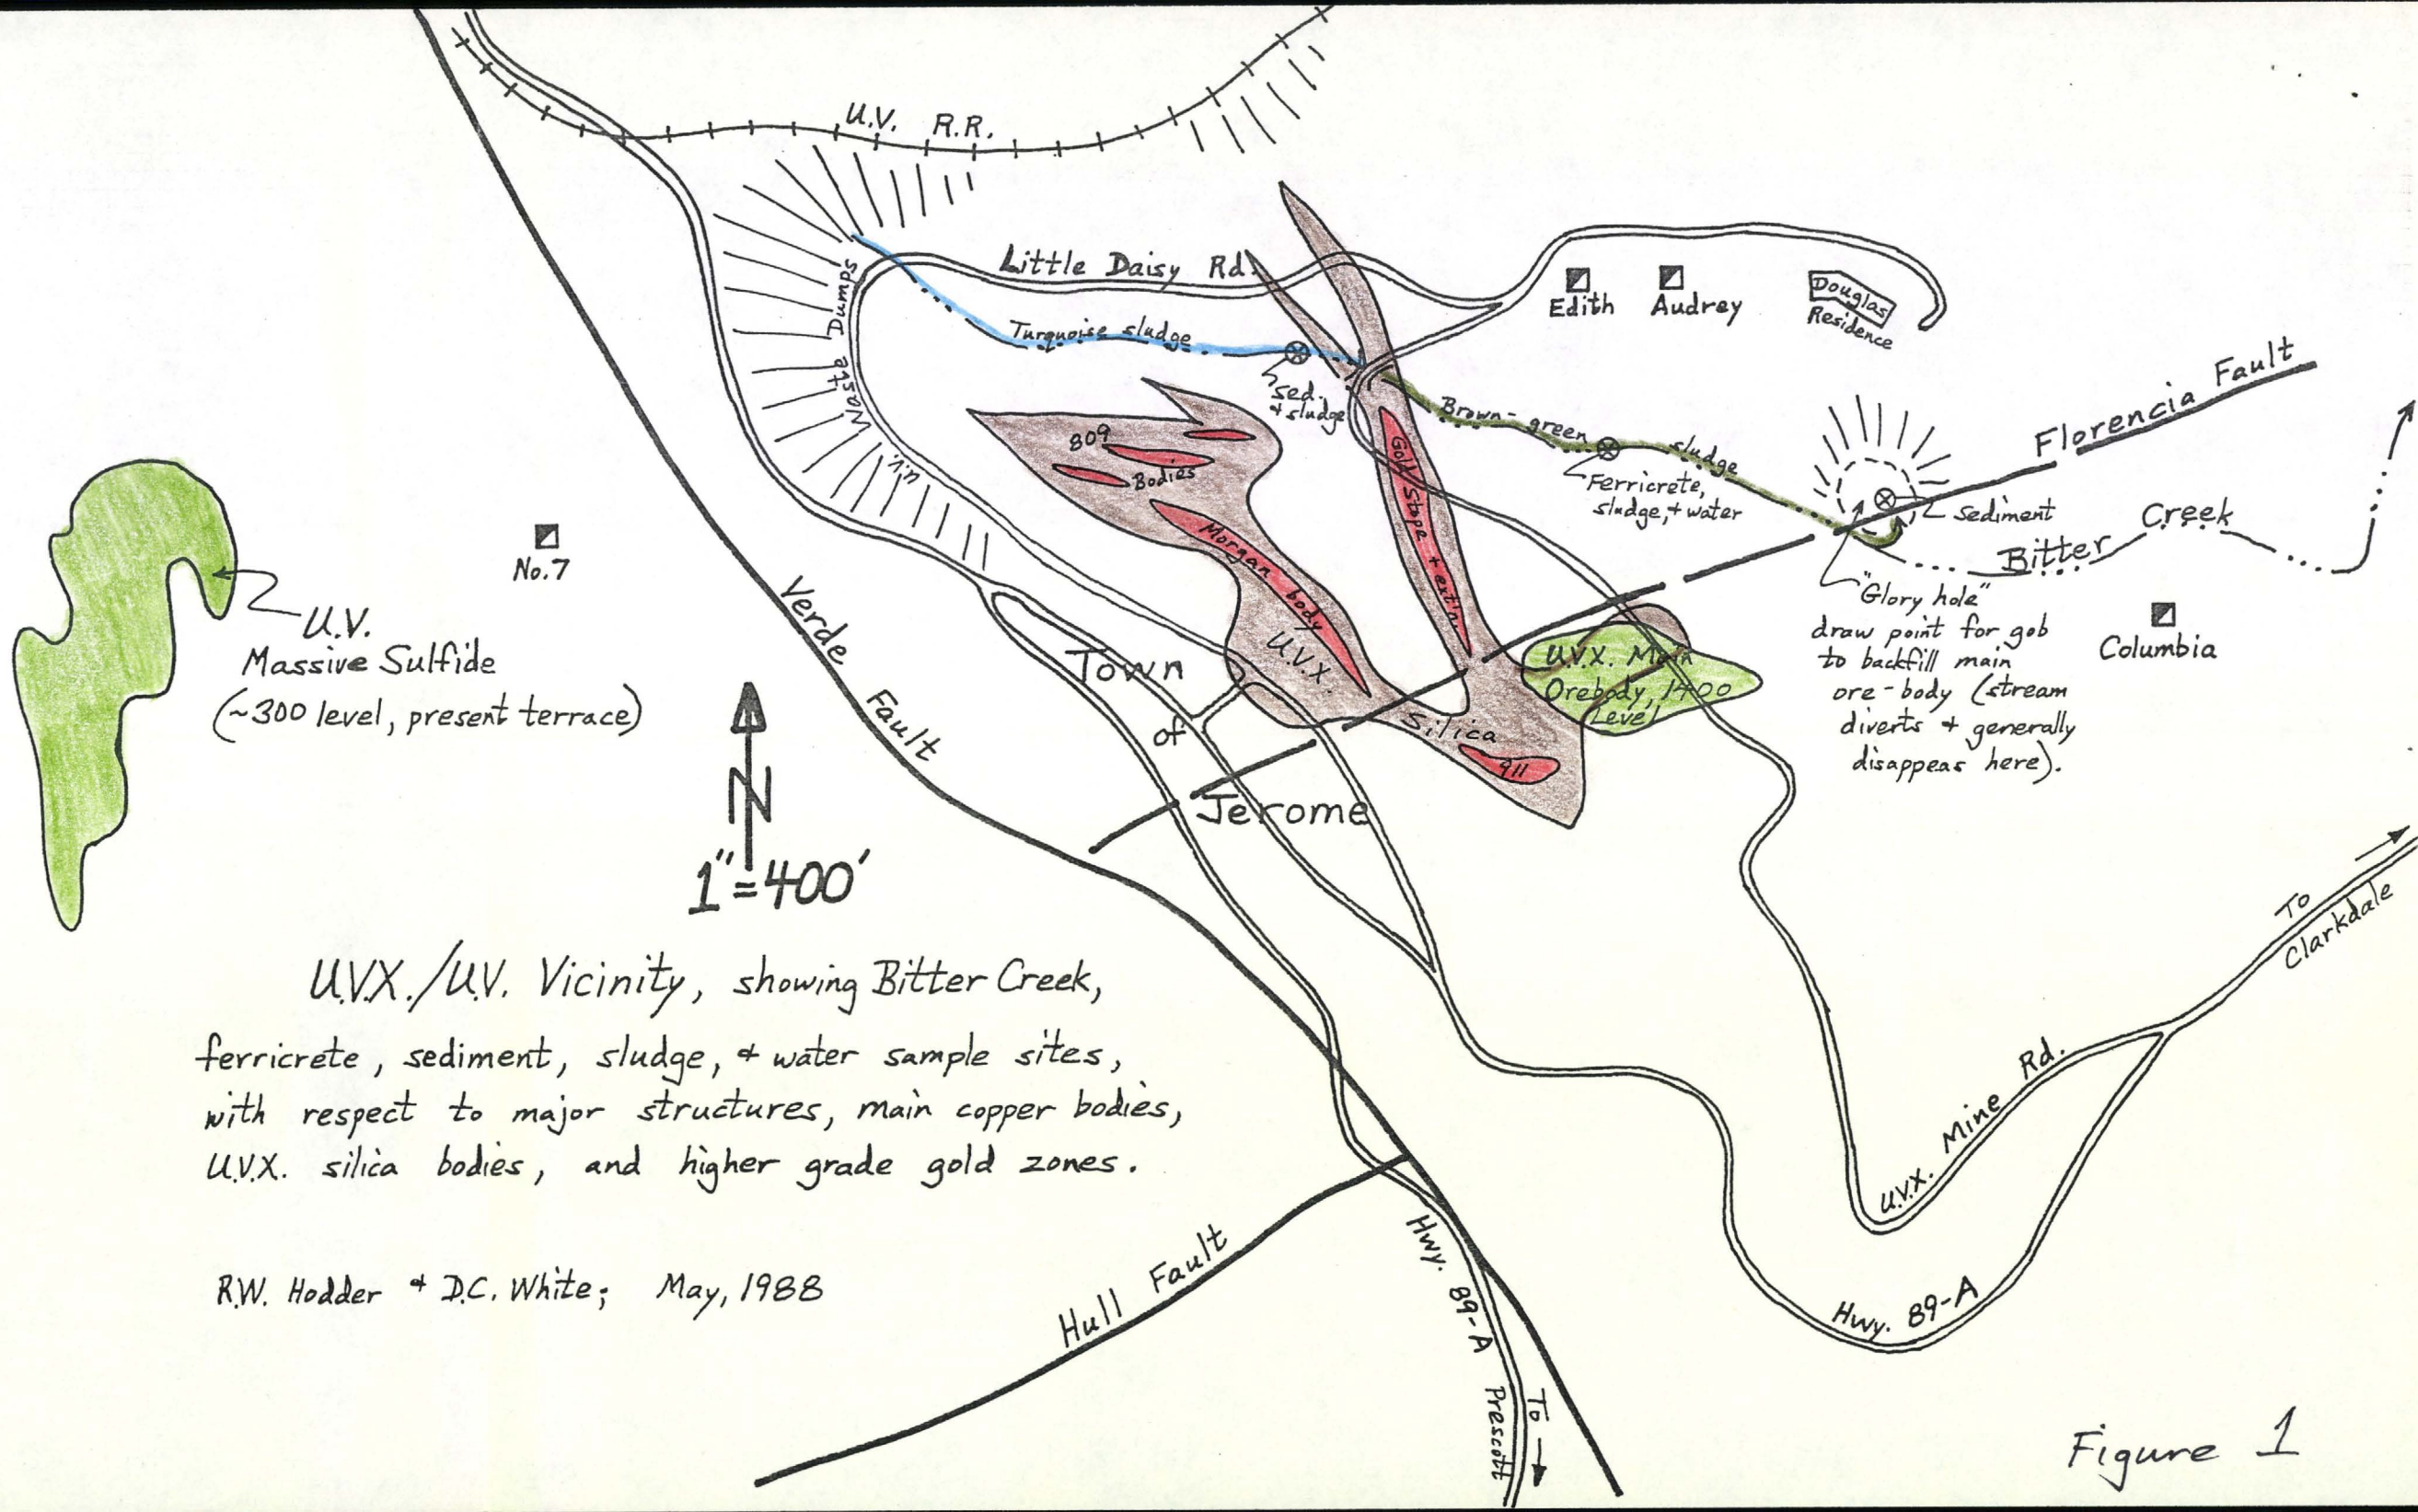 U.V. R.R.
Little Daisy Rd.
Waste Dumps
Turquoise sludge
sed.
+ sludge
Edith
Audrey
Douglas
Residence
Brown-green sludge
Ferricrete,
sludge, + water
Florencia Fault
sediment
Bitter Creek
"Glory hole"
draw point for gob
to backfill main
ore-body (stream
diverts + generally
disappeas here).
Columbia
809
Bodies
Morgan body
Gold Stope + ext'n.
U.V.X.
Silica
911
U.V.X. Main
Orebody, 1400
Level
No.7
U.V.
Massive Sulfide
(~300 level, present terrace)
Verde Fault
Town
of
Jerome
N
1"=400'
U.V.X./U.V. Vicinity, showing Bitter Creek,
ferricrete, sediment, sludge, + water sample sites,
with respect to major structures, main copper bodies,
U.V.X. silica bodies, and higher grade gold zones.
R.W. Hodder + D.C. White; May, 1988
Hull Fault
Hwy. 89-A
To
Prescott
U.V.X. Mine Rd.
Hwy. 89-A
To
Clarkdale
Figure 1